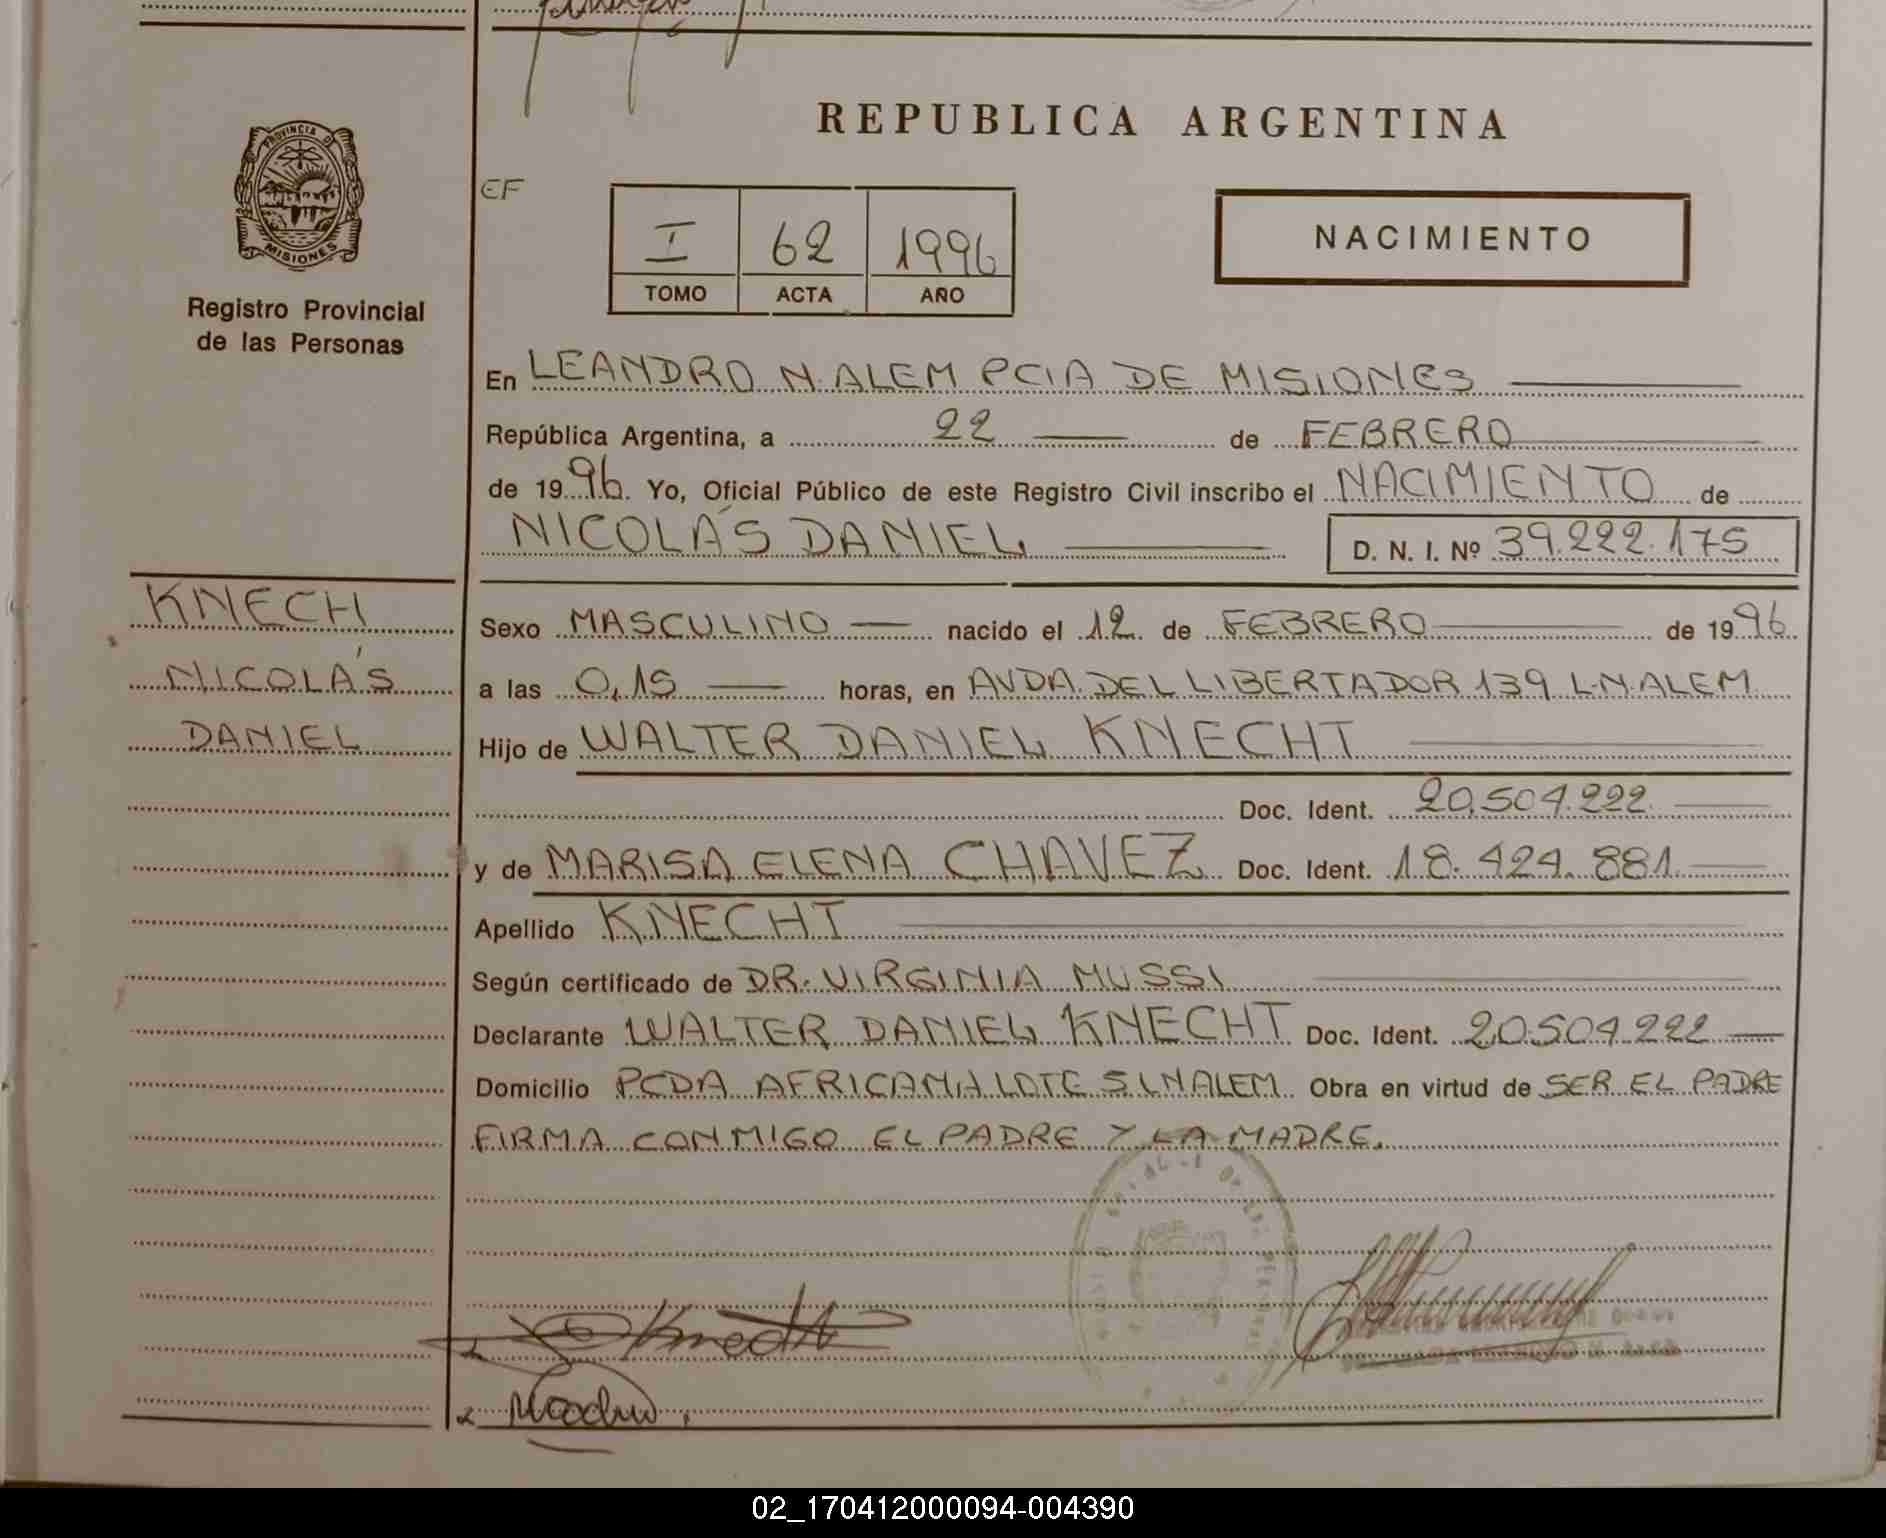 REPUBLICA ARGENTINA
PROVINCIA D
MISIONES
Registro Provincial
de las Personas
EF
I 62 1996
TOMO ACTA AÑO
NACIMIENTO
En LEANDRO N. ALEM PCIA DE MISIONES
República Argentina, a 22 de FEBRERO
de 1996. Yo, Oficial Público de este Registro Civil inscribo el NACIMIENTO de
NICOLÁS DANIEL
D. N. I. Nº 39.222.175
KNECH
NICOLÁS
DANIEL
Sexo MASCULINO nacido el 12 de FEBRERO de 1996
a las 0,15 horas, en AVDA. DEL LIBERTADOR 139 L.N.ALEM
Hijo de WALTER DANIEL KNECHT
Doc. Ident. 20.504.222
y de MARISA ELENA CHAVEZ Doc. Ident. 18.424.881
Apellido KNECHT
Según certificado de DR. VIRGINIA MUSSI
Declarante WALTER DANIEL KNECHT Doc. Ident. 20.504.222
Domicilio PCDA AFRICANA LOTE 5 LNALEM Obra en virtud de SER EL PADRE
FIRMA CONMIGO EL PADRE Y LA MADRE.
Knecht
02_170412000094-004390